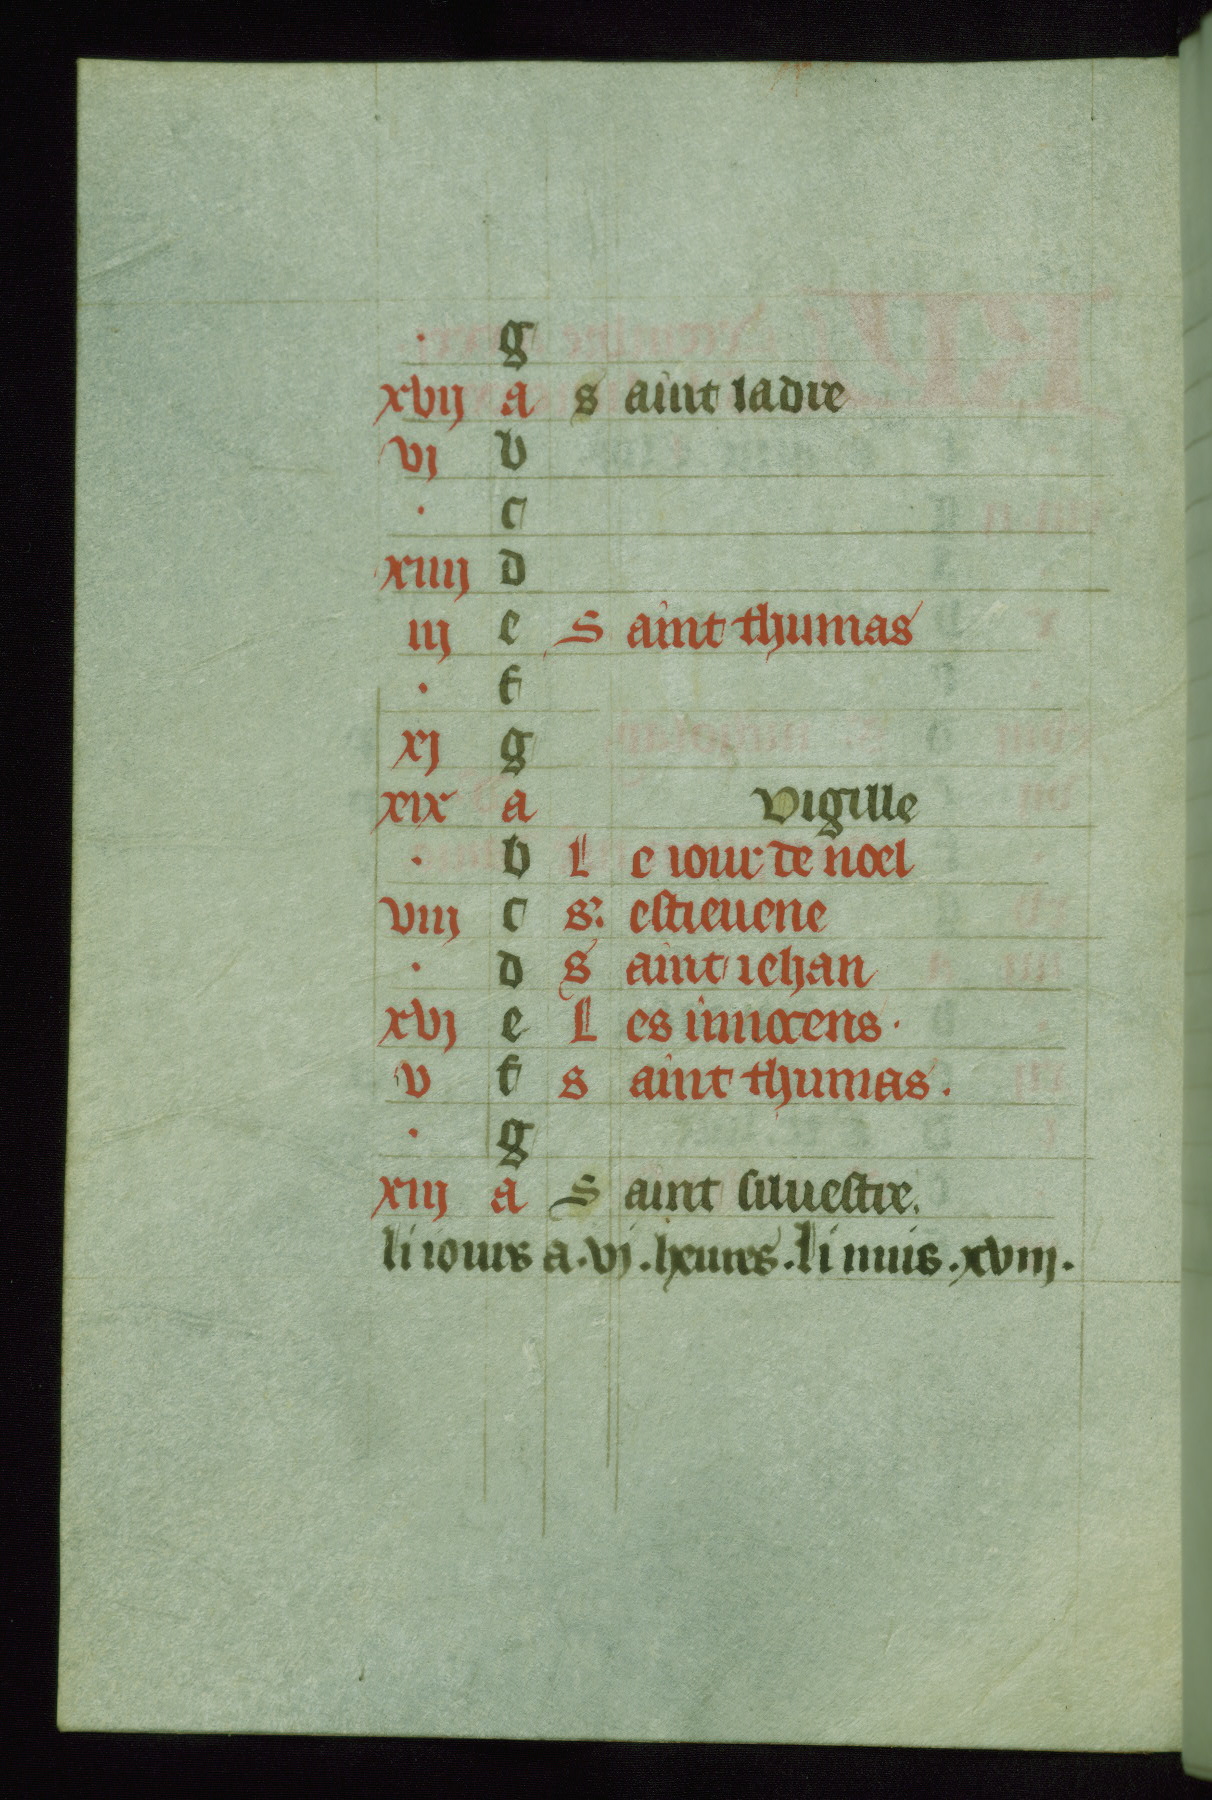 · g
xvij a s aint ladre
vj b
· c
xiiij d
iij e S aint thumas
· f
xj g
xix a vigille
· b L e iour de noel
viij c s: estieuene
· d S aint iehan
xvj e L es innocens ·
v f s aint thumas .
· g
xiij a S aint siluestre.
li iours a . vj . heures . li nuis . xviij .